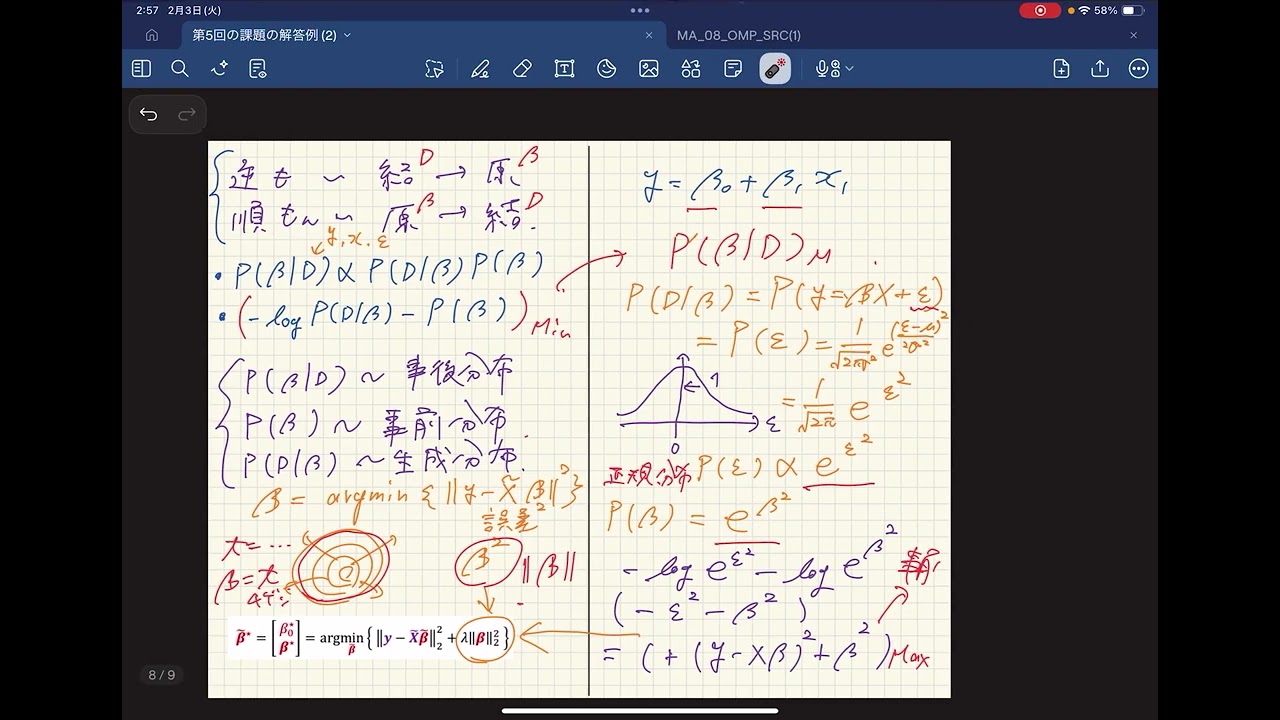 2:57 2月3日(火)
58%
第5回の課題の解答例(2)
MA_08_OMP_SRC(1)
逆も 〜 結 D → 原 β
順もん 〜 原 β → 結 D.
y, x, ε
・P(β|D) ∝ P(D|β) P(β)
・(-log P(D|β) - P(β)) Min
P(β|D) ~ 事後分布
P(β) ~ 事前分布.
P(D|β) ~ 生成分布.
β = argmin {‖y - X̃β‖²}
誤差
t = …
β = t
β² ‖β‖
β̃* = [β₀* β*] = argmin β̃ {‖y − X̃β̃‖₂² + λ‖β‖₂²}
8 / 9
y = β₀ + β₁ x₁
P(β|D) M
P(D|β) = P(y = βX + ε)
= P(ε) = 1/√2πσ² e^(ε-μ)²/2σ²
= 1/√2π e^ε²
1
ε
0
正規分布 P(ε) ∝ e^ε²
P(β) = e^β²
- log e^ε² - log e^β² 事前
(- ε² - β²)
= (+ (y - Xβ)² + β²) Max